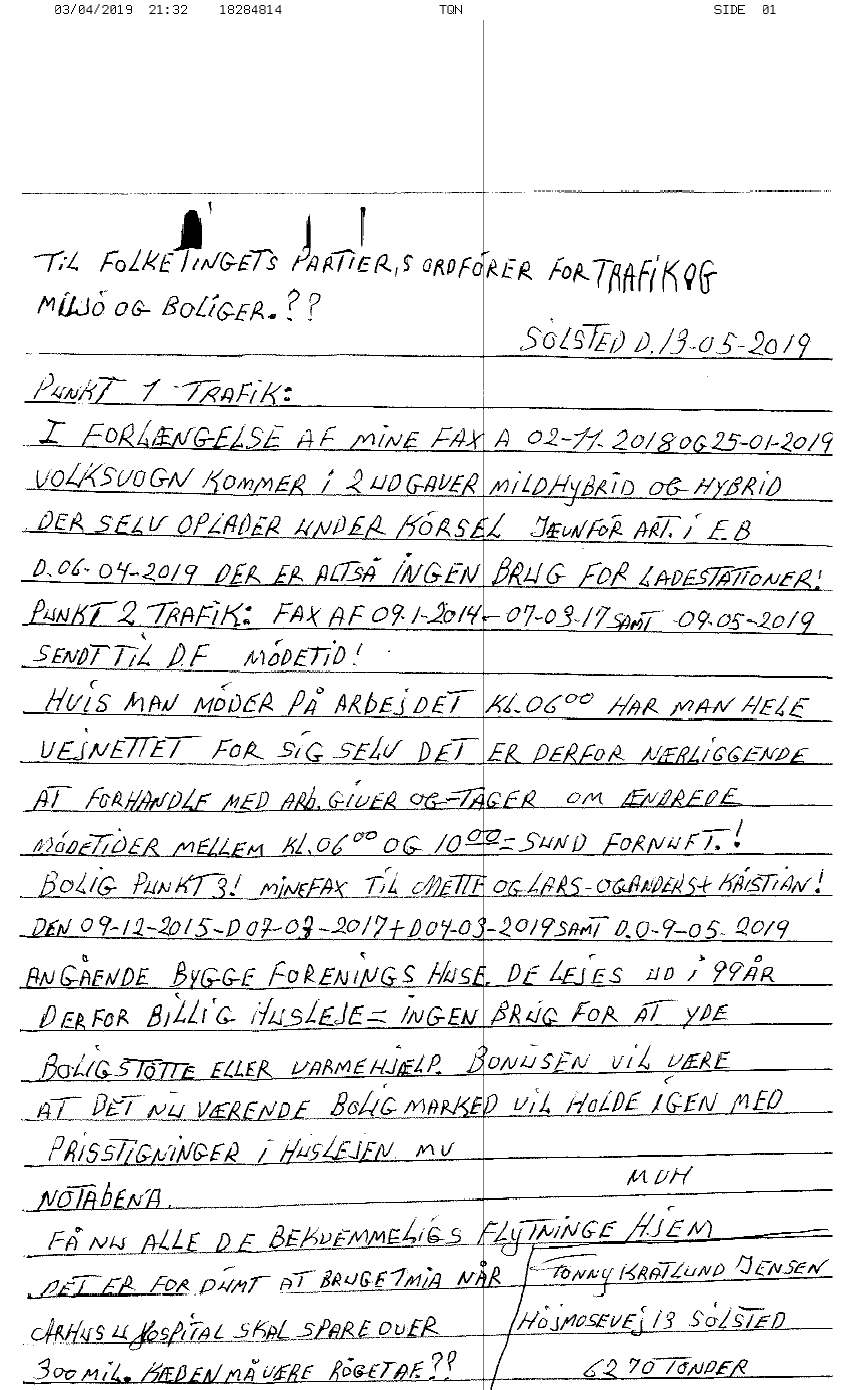 03/04/2019 21:32 18284814 TQN SIDE 01
TIL FOLKETINGETS PARTIER,S ORDFÖRER FOR TRAFIK OG
MILJÖ OG BOLIGER.??
SÖLSTED D.13-05-2019
PUNKT 1 TRAFIK:
I FORLÆNGELSE AF MINE FAX A 02-11-2018 OG 25-01-2019
VOLKSVOGN KOMMER I 2 UDGAVER MILDHYBRID OG HYBRID
DER SELV OPLADER UNDER KÖRSEL JÆVNFÖR ART. I E.B
D.06-04-2019 DER ER ALTSÅ INGEN BRUG FOR LADESTATIONER!
PUNKT 2 TRAFIK: FAX AF 09.1-2014- 07-03-17 SAMT 09-05-2019
SENDT TIL D.F MÖDETID!
HVIS MAN MÖDER PÅ ARBEJDET KL.06⁰⁰ HAR MAN HELE
VEJNETTET FOR SIG SELV DET ER DERFOR NÆRLIGGENDE
AT FORHANDLE MED ARB.GIVER OG-TAGER OM ÆNDREDE
MÖDETIDER MELLEM KL.06⁰⁰ OG 10⁰⁰= SUND FORNUFT.!
BOLIG PUNKT 3! MINE FAX TIL METTE OG LARS-OG ANDERS+ KRISTIAN!
DEN 09-12-2015-D 07-03-2017+D 04-03-2019 SAMT D.0-9-05-2019
ANGÅENDE BYGGE FORENINGS HUSE. DE LEJES UD I 99 ÅR
DERFOR BILLIG HUSLEJE= INGEN BRUG FOR AT YDE
BOLIGSTÖTTE ELLER VARMEHJÆLP. BONUSEN VIL VÆRE
AT DET NU VÆRENDE BOLIG MARKED VIL HOLDE IGEN MED
PRISSTIGNINGER I HUSLEJEN MV
MVH
NOTABENA.
FÅ NU ALLE DE BEKVEMMELIGS FLYTNINGE HJEM
DET ER FOR DUMT AT BRUGE 7MIA NÅR
TONNY KRATLUND JENSEN
ARHUS U HOSPITAL SKAL SPARE OVER
HÖJMOSEVEJ 13 SÖLSTED
300 MIL. KÆDEN MÅ VÆRE RÖGET AF.??
6270 TÖNDER